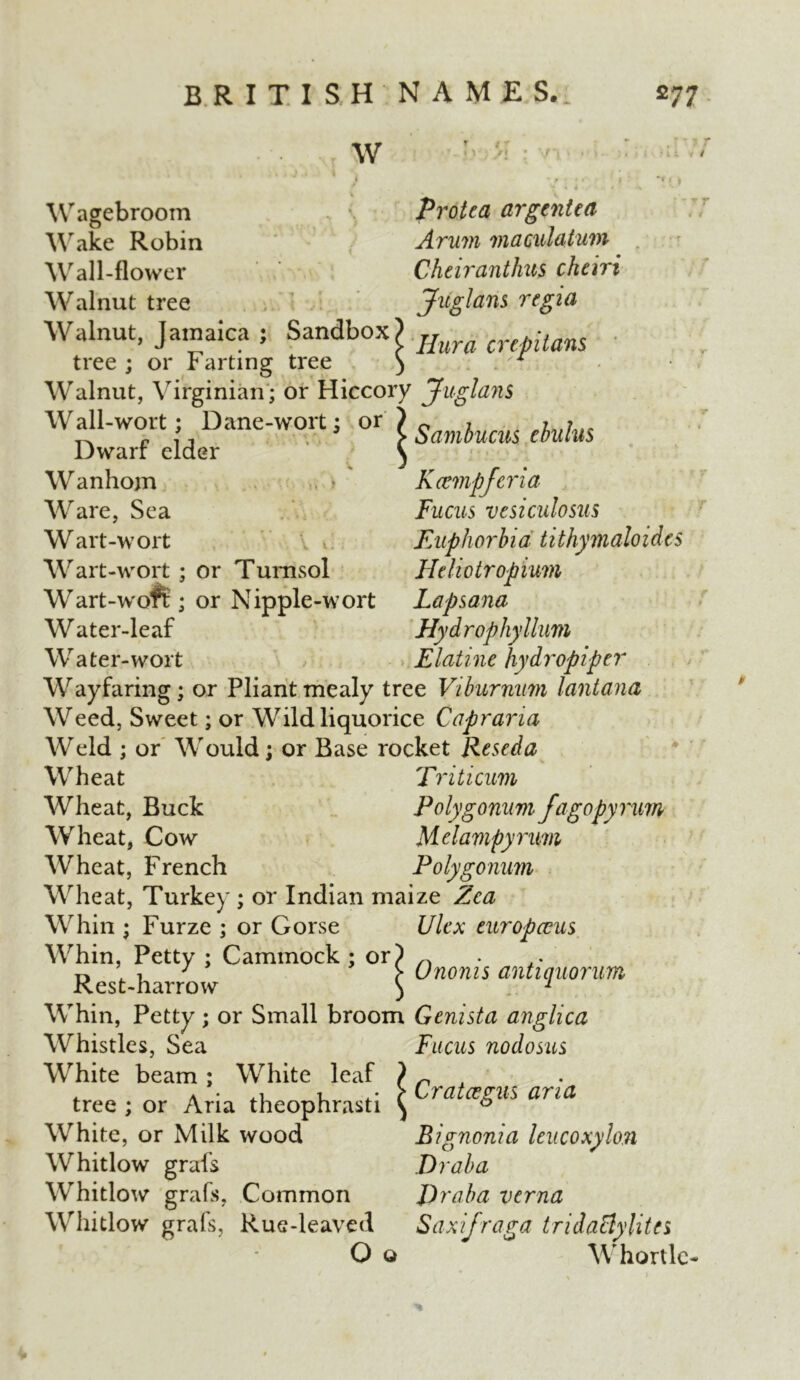 BRITISH NAMES. 277
W
Wagebroom Protea argentea
Wake Robin Arum maculatum
Wall-flower Cheiranthus cheiri
Walnut tree Juglans regia
Walnut, Jamaica ; Sandbox } Hura crepitans
tree ; or Farting tree
Walnut, Virginian ; or Hiccory Juglans
Wall-wort ; Dane-wort ; or } Sambucus ebulus
Dwarf elder
Wanhom Kæmpferia
Ware, Sea Fucus vesiculosus
Wart-wort Euphorbia tithymaloides
Wart-wort ; or Turnsol Heliotropium
Wart-wort ; or Nipple-wort Lapsana
Water-leaf Hydrophyllum
Water-wort Elatine hydropiper
Wayfaring ; or Pliant mealy tree Viburnum lantana
Weed, Sweet ; or Wild liquorice Capraria
Weld ; or Would ; or Base rocket Reseda
Wheat Triticum
Wheat, Buck Polygonum fagopyrum
Wheat, Cow Melampyrum
Wheat, French Polygonum
Wheat, Turkey ; or Indian maize Zea
Whin ; Furze ; or Gorse Ulex europæus
Whin, Petty ; Cammock ; or } Ononis antiquorum
Rest-harrow
Whin, Petty ; or Small broom Genista anglica
Whistles, Sea Fucus nodosus
White beam ; White leaf } Cratægus aria
tree ; or Aria theophrasti
White, or Milk wood Bignonia leucoxylon
Whitlow graſs Draba
Whitlow graſs, Common Draba verna
Whitlow graſs, Rue-leaved Saxifraga tridactylites
O o Whortle-